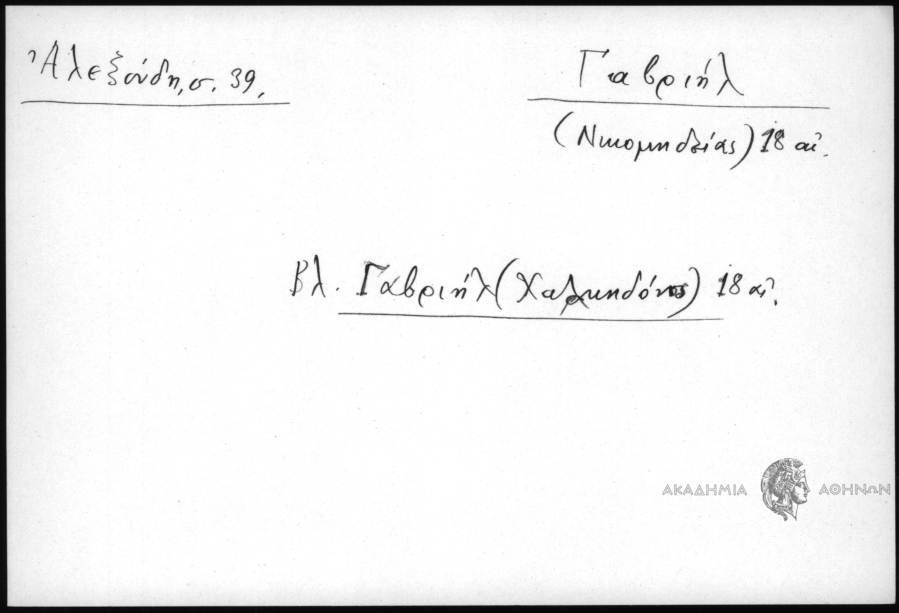 Ἀλεξούδη, σ. 39,
Γαβριήλ
(Νικομηδείας) 18 αἰ.
Βλ. Γαβριήλ (Χαλκηδόνος) 18 αἰ.
ΑΚΑΔΗΜΙΑ ΑΘΗΝΩΝ